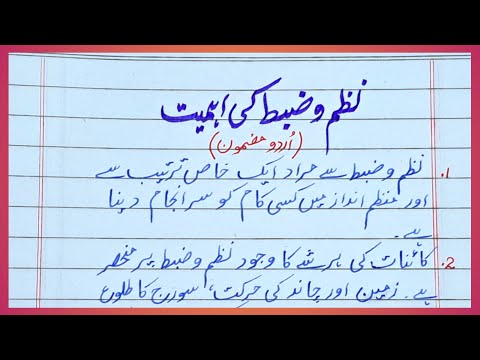 نظم و ضبط کی اہمیت
(اُردو مضمون)
1. نظم و ضبط سے مراد ایک خاص ترتیب سے
اور منظم انداز میں کسی کام کو سر انجام دینا
ہے۔
2. کائنات کی ہر شے کا وجود نظم و ضبط پر منحصر
ہے۔ زمین اور چاند کی حرکت، سورج کا طلوع